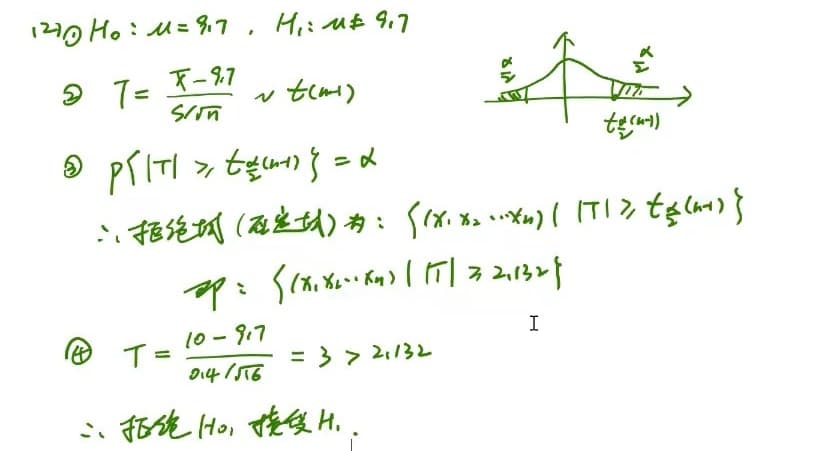 (2)① H₀: μ = 9.7 , H₁: μ ≠ 9.7
② T = (x̄ - 9.7)/(S/√n) ~ t(n-1)
α/2 α/2
t_{α/2}(n-1)
③ P{|T| ≥ t_{α/2}(n-1)} = α
∴ 拒绝域(否定域)为: {(x₁ x₂ ⋯ xₙ) | |T| ≥ t_{α/2}(n-1)}
即: {(x₁ x₂ ⋯ xₙ) | |T| ≥ 2.132}
④ T = (10 - 9.7)/(0.4/√16) = 3 > 2.132
∴ 拒绝H₀, 接受H₁.